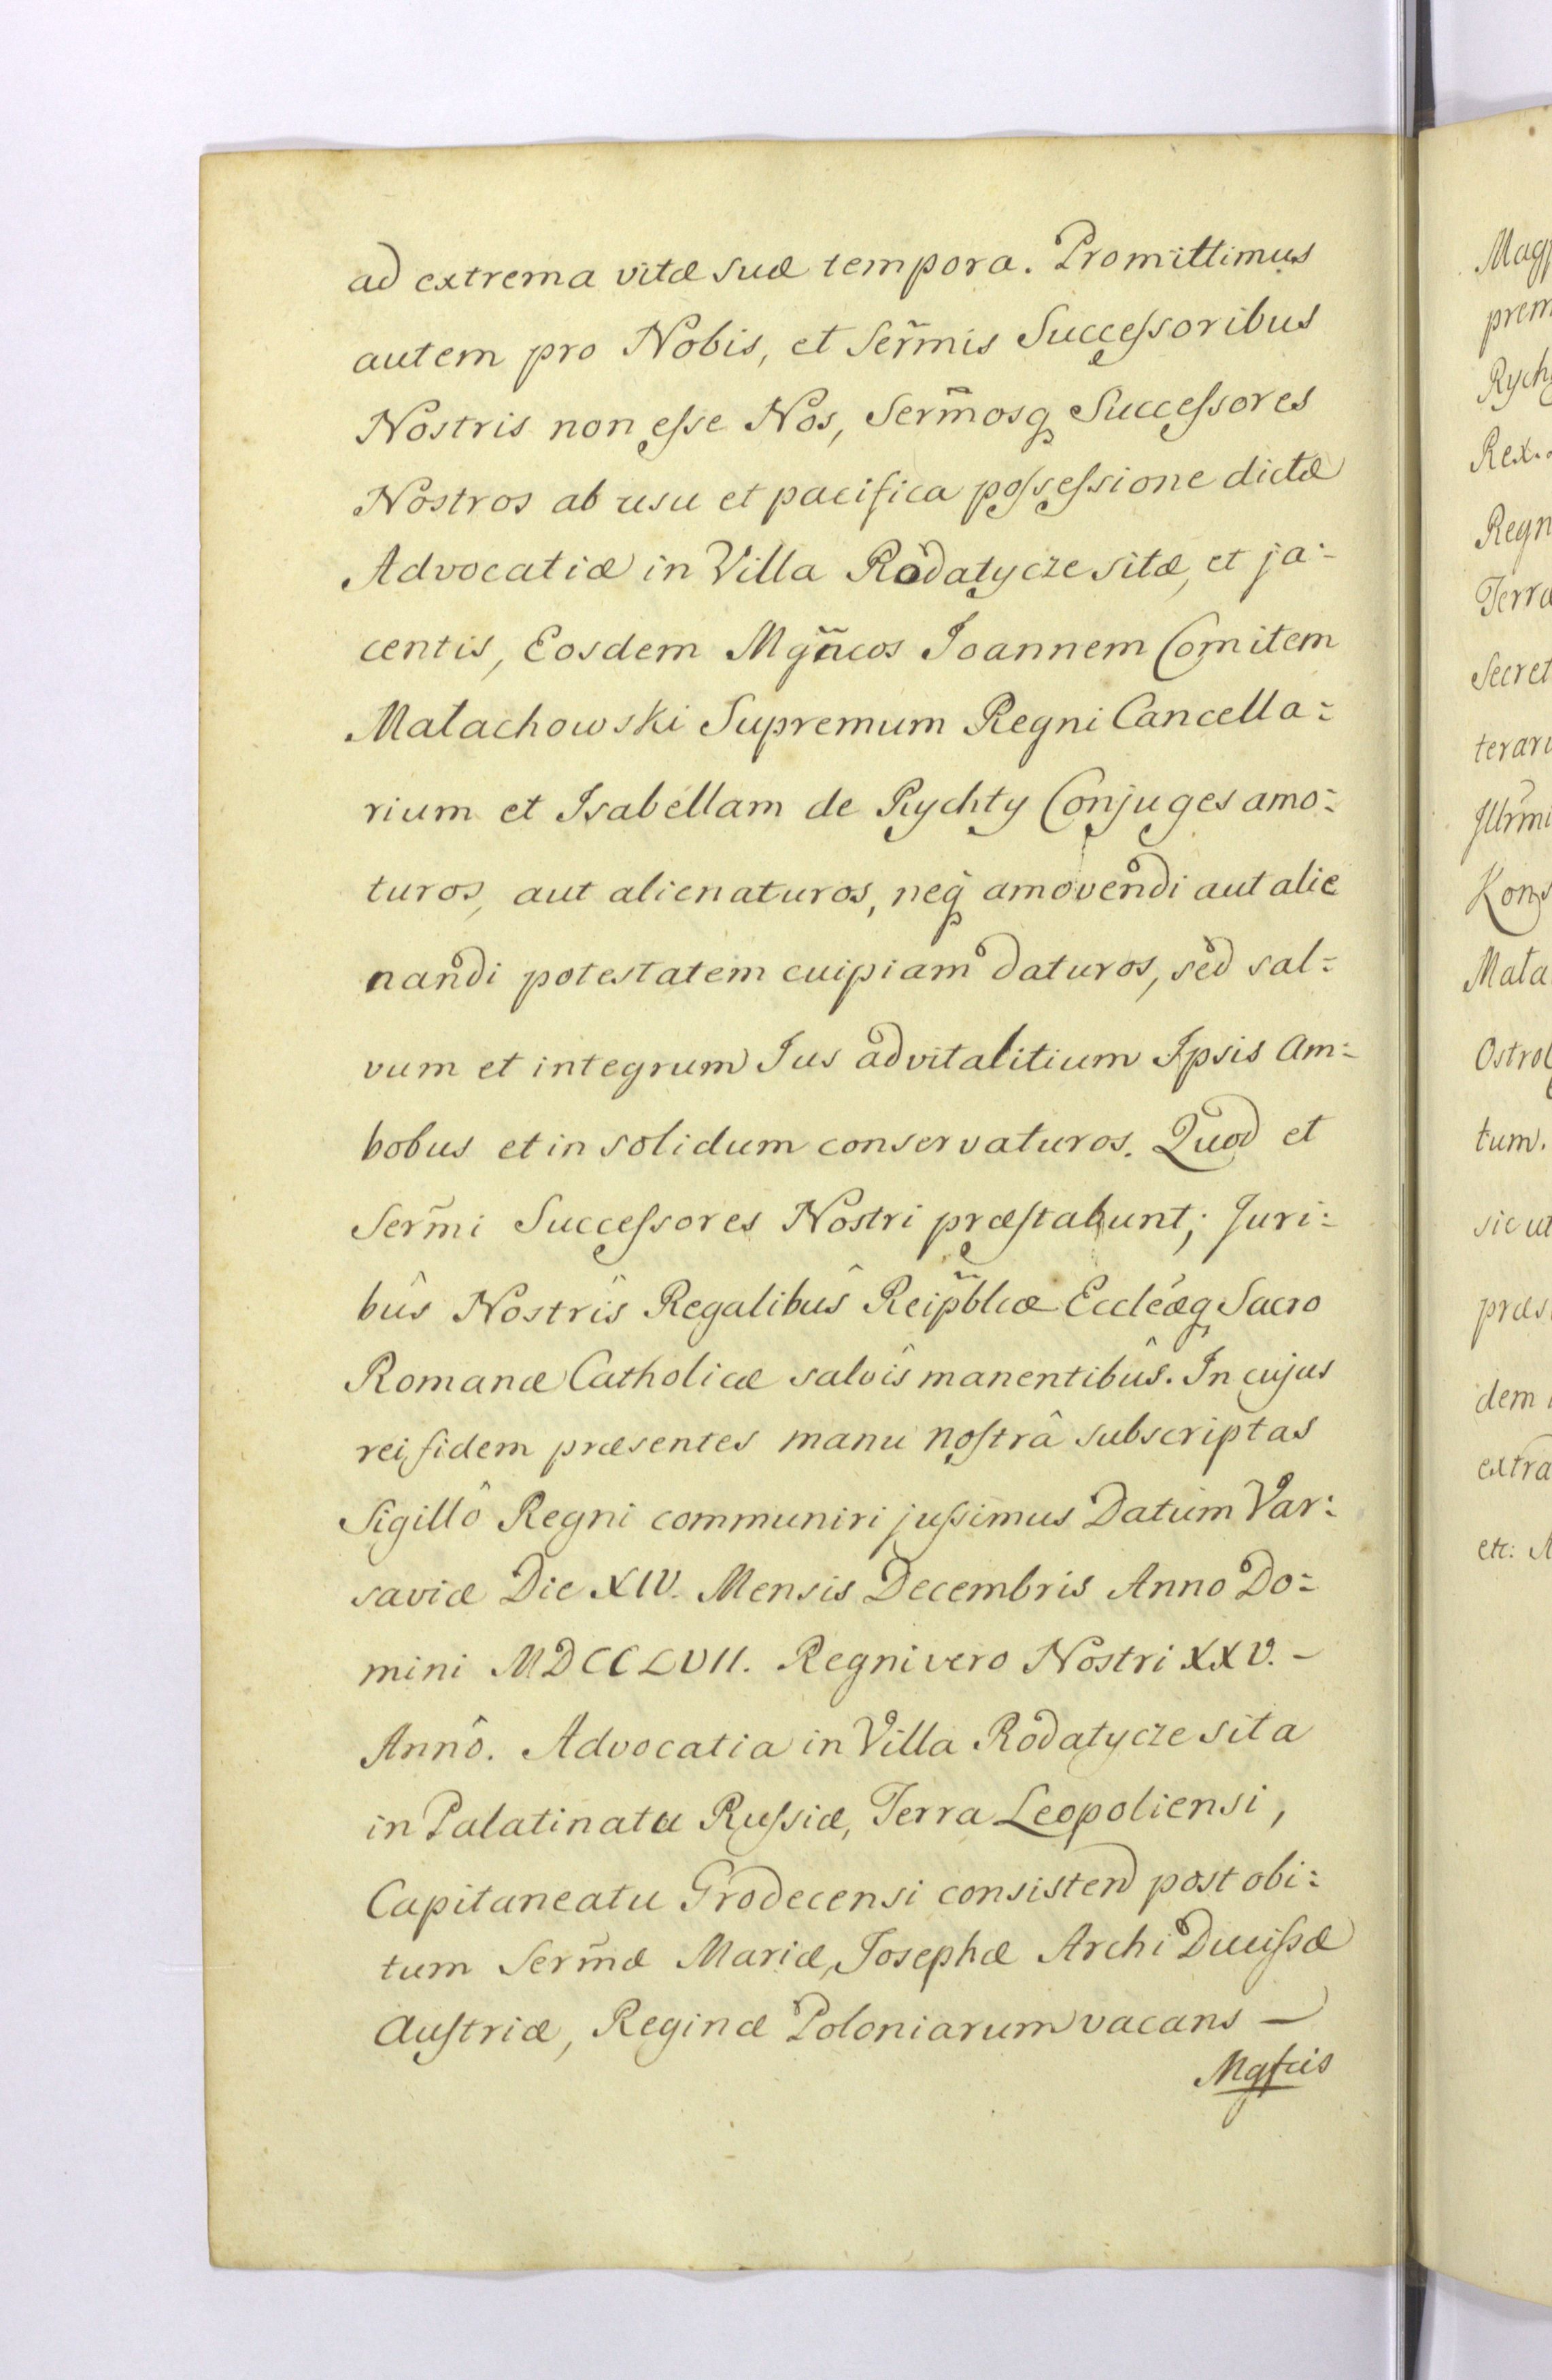 ad extrema vitæ suæ tempora. Promittimus
autem pro Nobis, et Serm̃is Succeſsoribus
Nostris non eſse Nos, Serm̃osq Succeſsores
Nostros ab usu et pacifica poſseſsione dictæ
Advocatiæ in Villa Rodatycze sitæ, et ja=
centis, Eosdem Mgñcos Joannem Comitem
Małachowski Supremum Regni Cancella=
rium et Isabellam de Rychty Conjuges amo=
turos, aut alienaturos, neq amovendi aut alie
nandi potestatem cuipiam daturos, sed sal=
vum et integrum Jus advitalitium Ipsis Am=
bobus et in solidum conservaturos. Quod et
Serm̃i Succeſsores Nostri præſtabunt; Juri=
bûs Nostrîs Regalibûs Reip̃blicæ Eccleæq Sacro
Romanæ Catholicæ salvîs manentibûs. In cujus
rei fidem præsentes manu noſtrâ subscriptas
Sigillô Regni communiri juſsimus Datum Var=
saviæ Die XIV. Mensis Decembris Anno Do=
mini MDCCLVII. Regni vero Nostri XXV. –
Annô. Advocatia in Villa Rodatycze sita
in Palatinatu Ruſsiæ, Terra Leopoliensi,
Capitaneatu Grodecensi consisten post obi=
tum Serm̃æ Mariæ Josephæ Archi Duciſsæ
Auſtriæ, Reginæ Poloniarum vacans –
Mgfcis
Mag
prem
Rych
Rex.
Regn
Terra
Secret
terari
Illrm̃i
Kons
Mała
Ostro
tum.
sic ut
præs
dem
extra
etc: